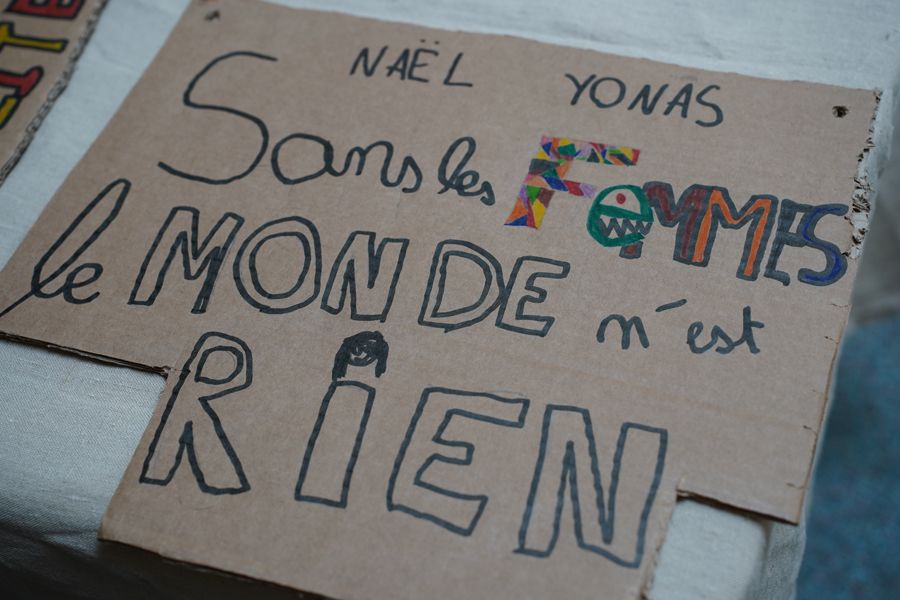 NAËL YONAS
Sans les FeMMES
le MONDE n'est
RiEN